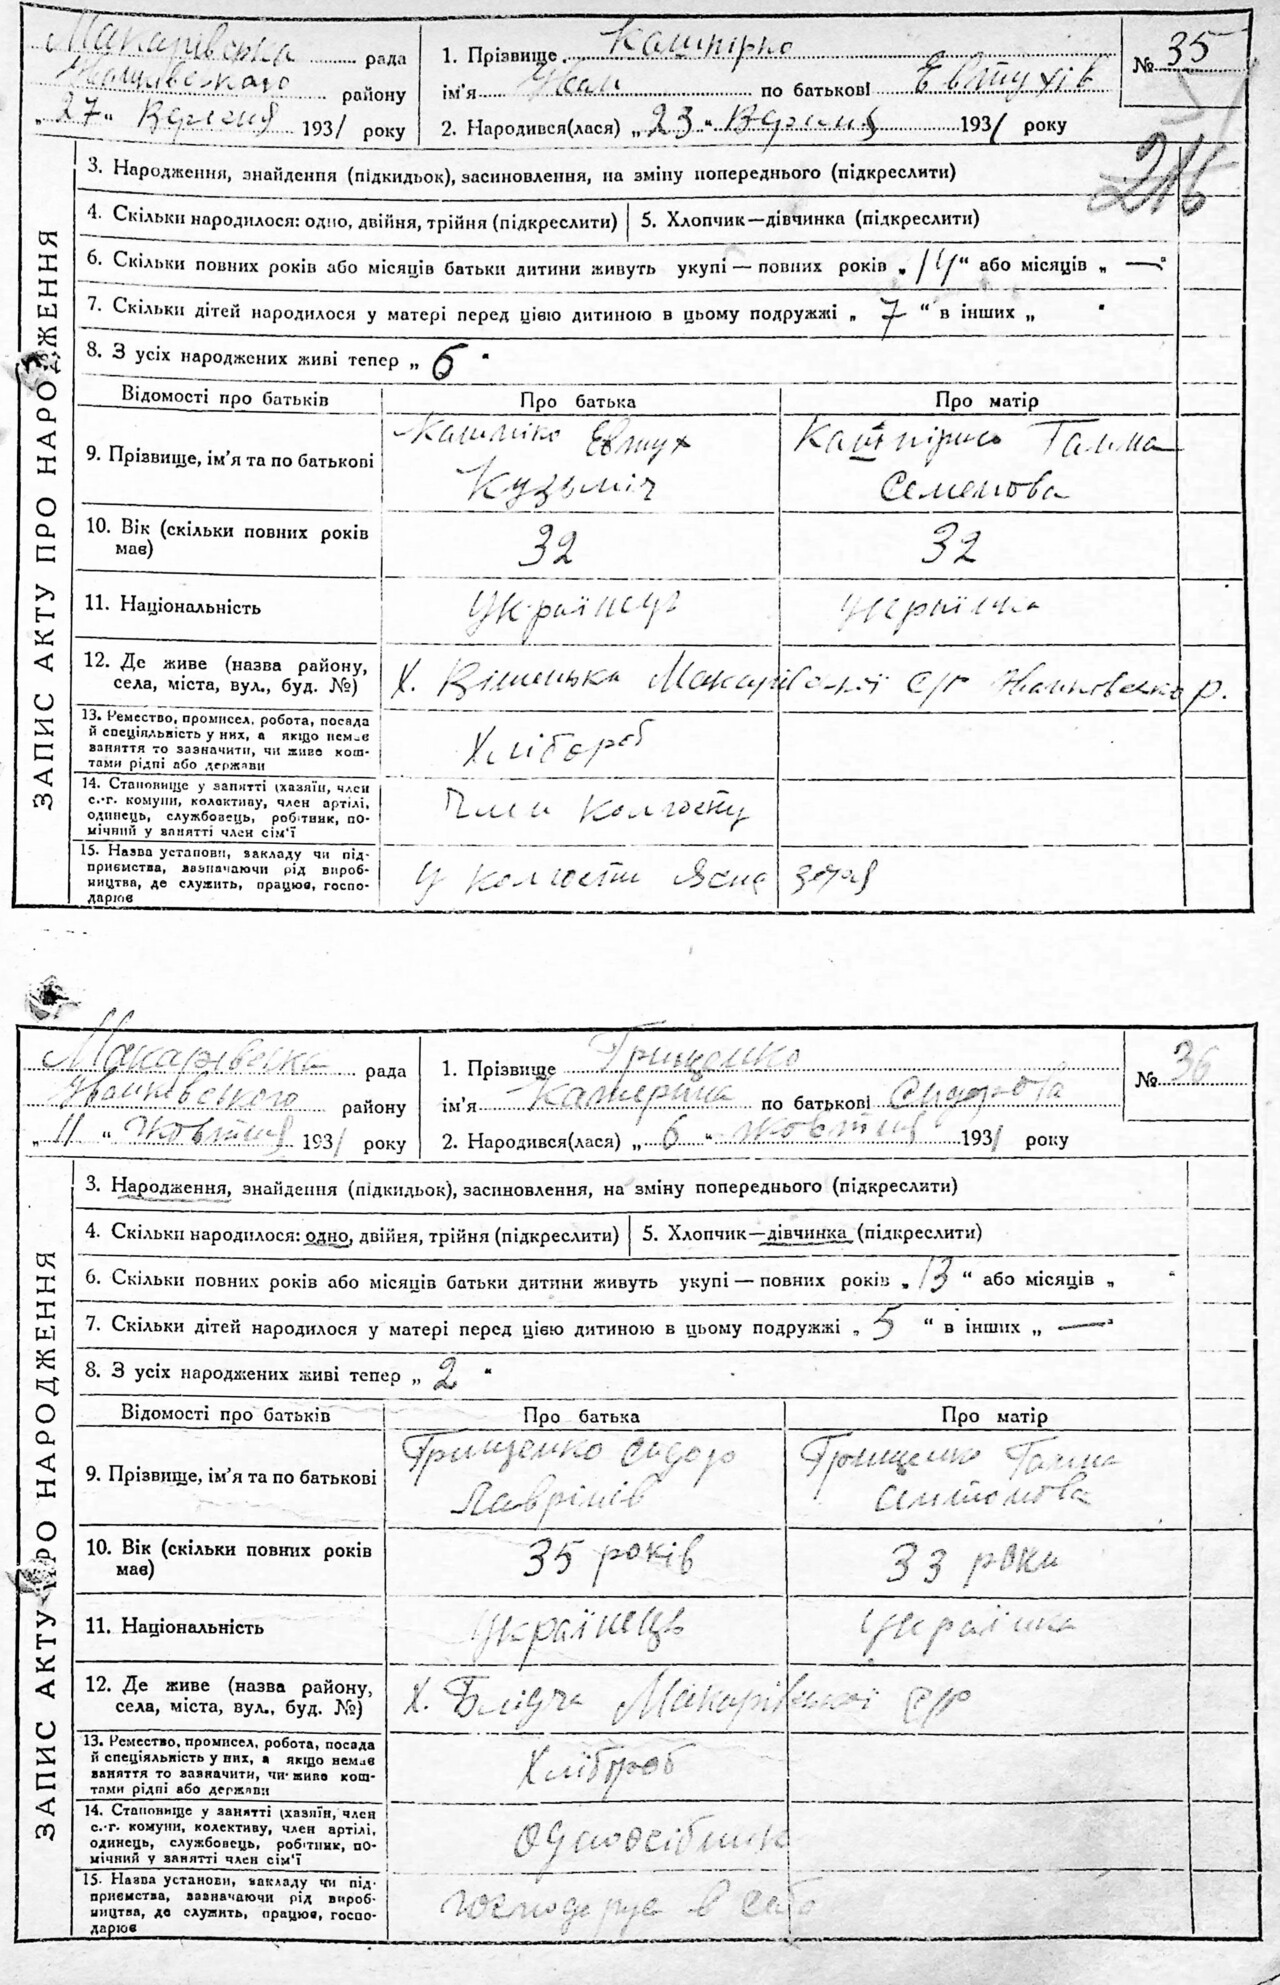 Макарівська рада
Іванківського району
„27“ Вересня 1931 року
1. Прізвище Кашпірко
ім'я Іван по батькові Евтухів
2. Народився(лася) „23“ Вересня 1931 року
№ 35
216
ЗАПИС АКТУ ПРО НАРОДЖЕННЯ
3. Народження, знайдення (підкидьок), засиновлення, на зміну попереднього (підкреслити)
4. Скільки народилося: одно, двійня, трійня (підкреслити) 5. Хлопчик—дівчинка (підкреслити)
6. Скільки повних років або місяців батьки дитини живуть укупі — повних років „14“ або місяців „—“
7. Скільки дітей народилося у матері перед цією дитиною в цьому подружжі „7“ в інших „ “
8. З усіх народжених живі тепер „6“
Відомості про батьків Про батька Про матір
9. Прізвище, ім'я та по батькові
Евтух
Кузьміч
Кашпірко Ганна
Семенова
10. Вік (скільки повних років
має)
32 32
11. Національність Українець Українка
12. Де живе (назва району,
села, міста, вул., буд. №)
Х. Макарівської с/р Іванковського р.
13. Ремество, промисел, робота, посада
й спеціяльність у них, а якщо немає
заняття то зазначити, чи живе кош-
тами рідні або держави
Хлібороб
14. Становище у занятті (хазяїн, член
с.-г. комуни, колективу, член артілі,
одинець, службовець, робітник, по-
мічний у занятті член сім'ї
Член колгоспу
15. Назва установи, закладу чи під-
приємства, зазначаючи рід вироб-
ництва, де служить, працює, госпо-
дарює
У колгоспі Ясна зоря
Макарівська рада
Іванківського району
„11“ Жовтня 1931 року
1. Прізвище Грищенко
ім'я Катерина по батькові Сидорова
2. Народився(лася) „6“ жовтня 1931 року
№ 36
ЗАПИС АКТУ ПРО НАРОДЖЕННЯ
3. Народження, знайдення (підкидьок), засиновлення, на зміну попереднього (підкреслити)
4. Скільки народилося: одно, двійня, трійня (підкреслити) 5. Хлопчик—дівчинка (підкреслити)
6. Скільки повних років або місяців батьки дитини живуть укупі — повних років „13“ або місяців „ “
7. Скільки дітей народилося у матері перед цією дитиною в цьому подружжі „5“ в інших „—“
8. З усіх народжених живі тепер „2“
Відомості про батьків Про батька Про матір
9. Прізвище, ім'я та по батькові
Грищенко Сидор
Лаврінів
Грищенко Ганна
Антонова
10. Вік (скільки повних років
має)
35 років 33 роки
11. Національність Українець Українка
12. Де живе (назва району,
села, міста, вул., буд. №)
Х. Блідча Макарівської с/р
13. Ремество, промисел, робота, посада
й спеціяльність у них, а якщо немає
заняття то зазначити, чи живе кош-
тами рідні або держави
Хлібороб
14. Становище у занятті (хазяїн, член
с.-г. комуни, колективу, член артілі,
одинець, службовець, робітник, по-
мічний у занятті член сім'ї
Одноосібник
15. Назва установи, закладу чи під-
приємства, зазначаючи рід вироб-
ництва, де служить, працює, госпо-
дарює
господарує в себе